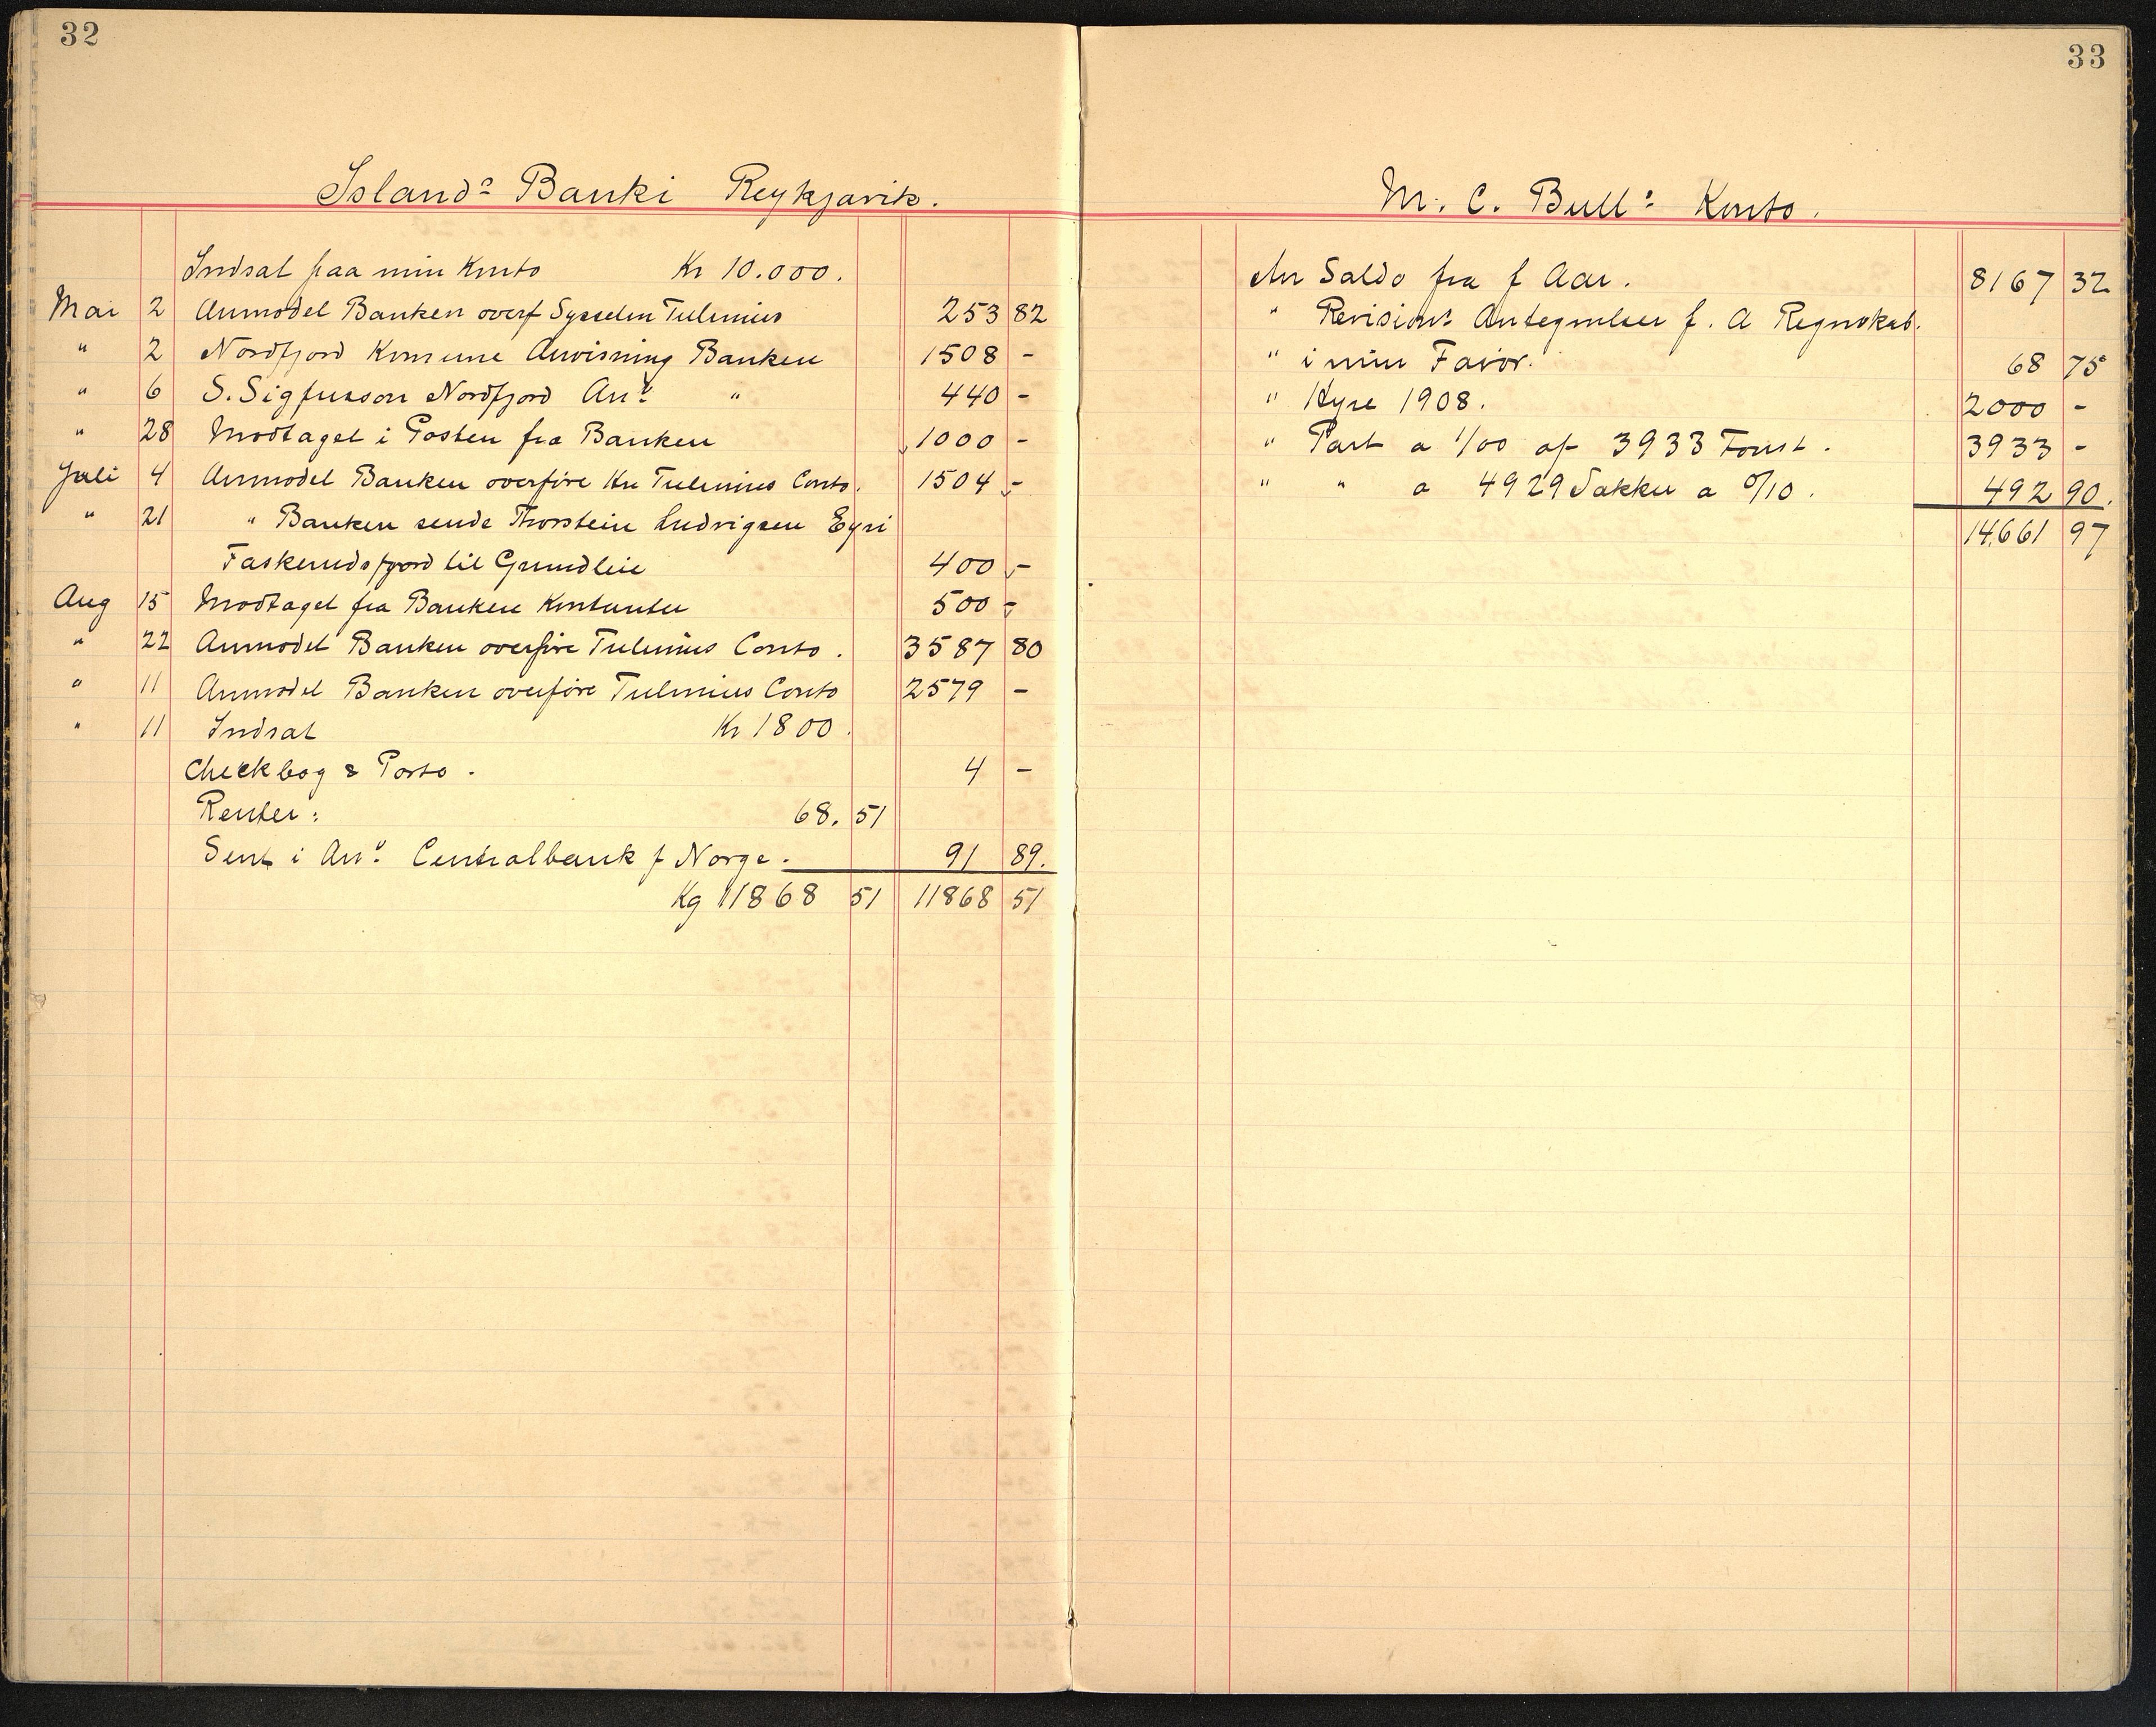 32
Islands Banki Reykjavik.
Indsat paa min Konto Kr 10.000.
Mai 2 Anmodet Banken overf Sysselm Tulinius 253 82
" 2 Nordfjord Komune Anvisning Banken 1508 -
" 6 S. Sigfusson Nordfjord Anv " 440 -
" 28 Modtaget i Posten fra Banken 1000 -
Juli 4 Anmodet Banken overføre Kr Tulinius Conto. 1504 -
" 21 " Banken sende Thorstein Ludvigsen Eyri
Faskrudsfjord til Grundleie 400 -
Aug 15 Modtaget fra Banken Kontanter 500 -
" 22 Anmodet Banken overføre Tulinius Conto. 3587 80
" 11 Anmodet Banken overføre Tulinius Conto 2579 -
" 11 Indsat Kr 1800.
Checkbog & Porto. 4 -
Renter: 68. 51
Sent i Anv. Centralbank f Norge. 91 89.
Kg 11868 51 11868 51
33
M. C. Bull's Konto.
An Saldo fra f Aar. 8167 32
" Revisions Antegnelser f. A Regnskab.
" i min Favør. 68 75
" Hyre 1908. 2000 -
" Part a 1/00 af 3933 Tønst. 3933 -
" " a 4929 Sækker a 0/10. 492 90.
14.661 97